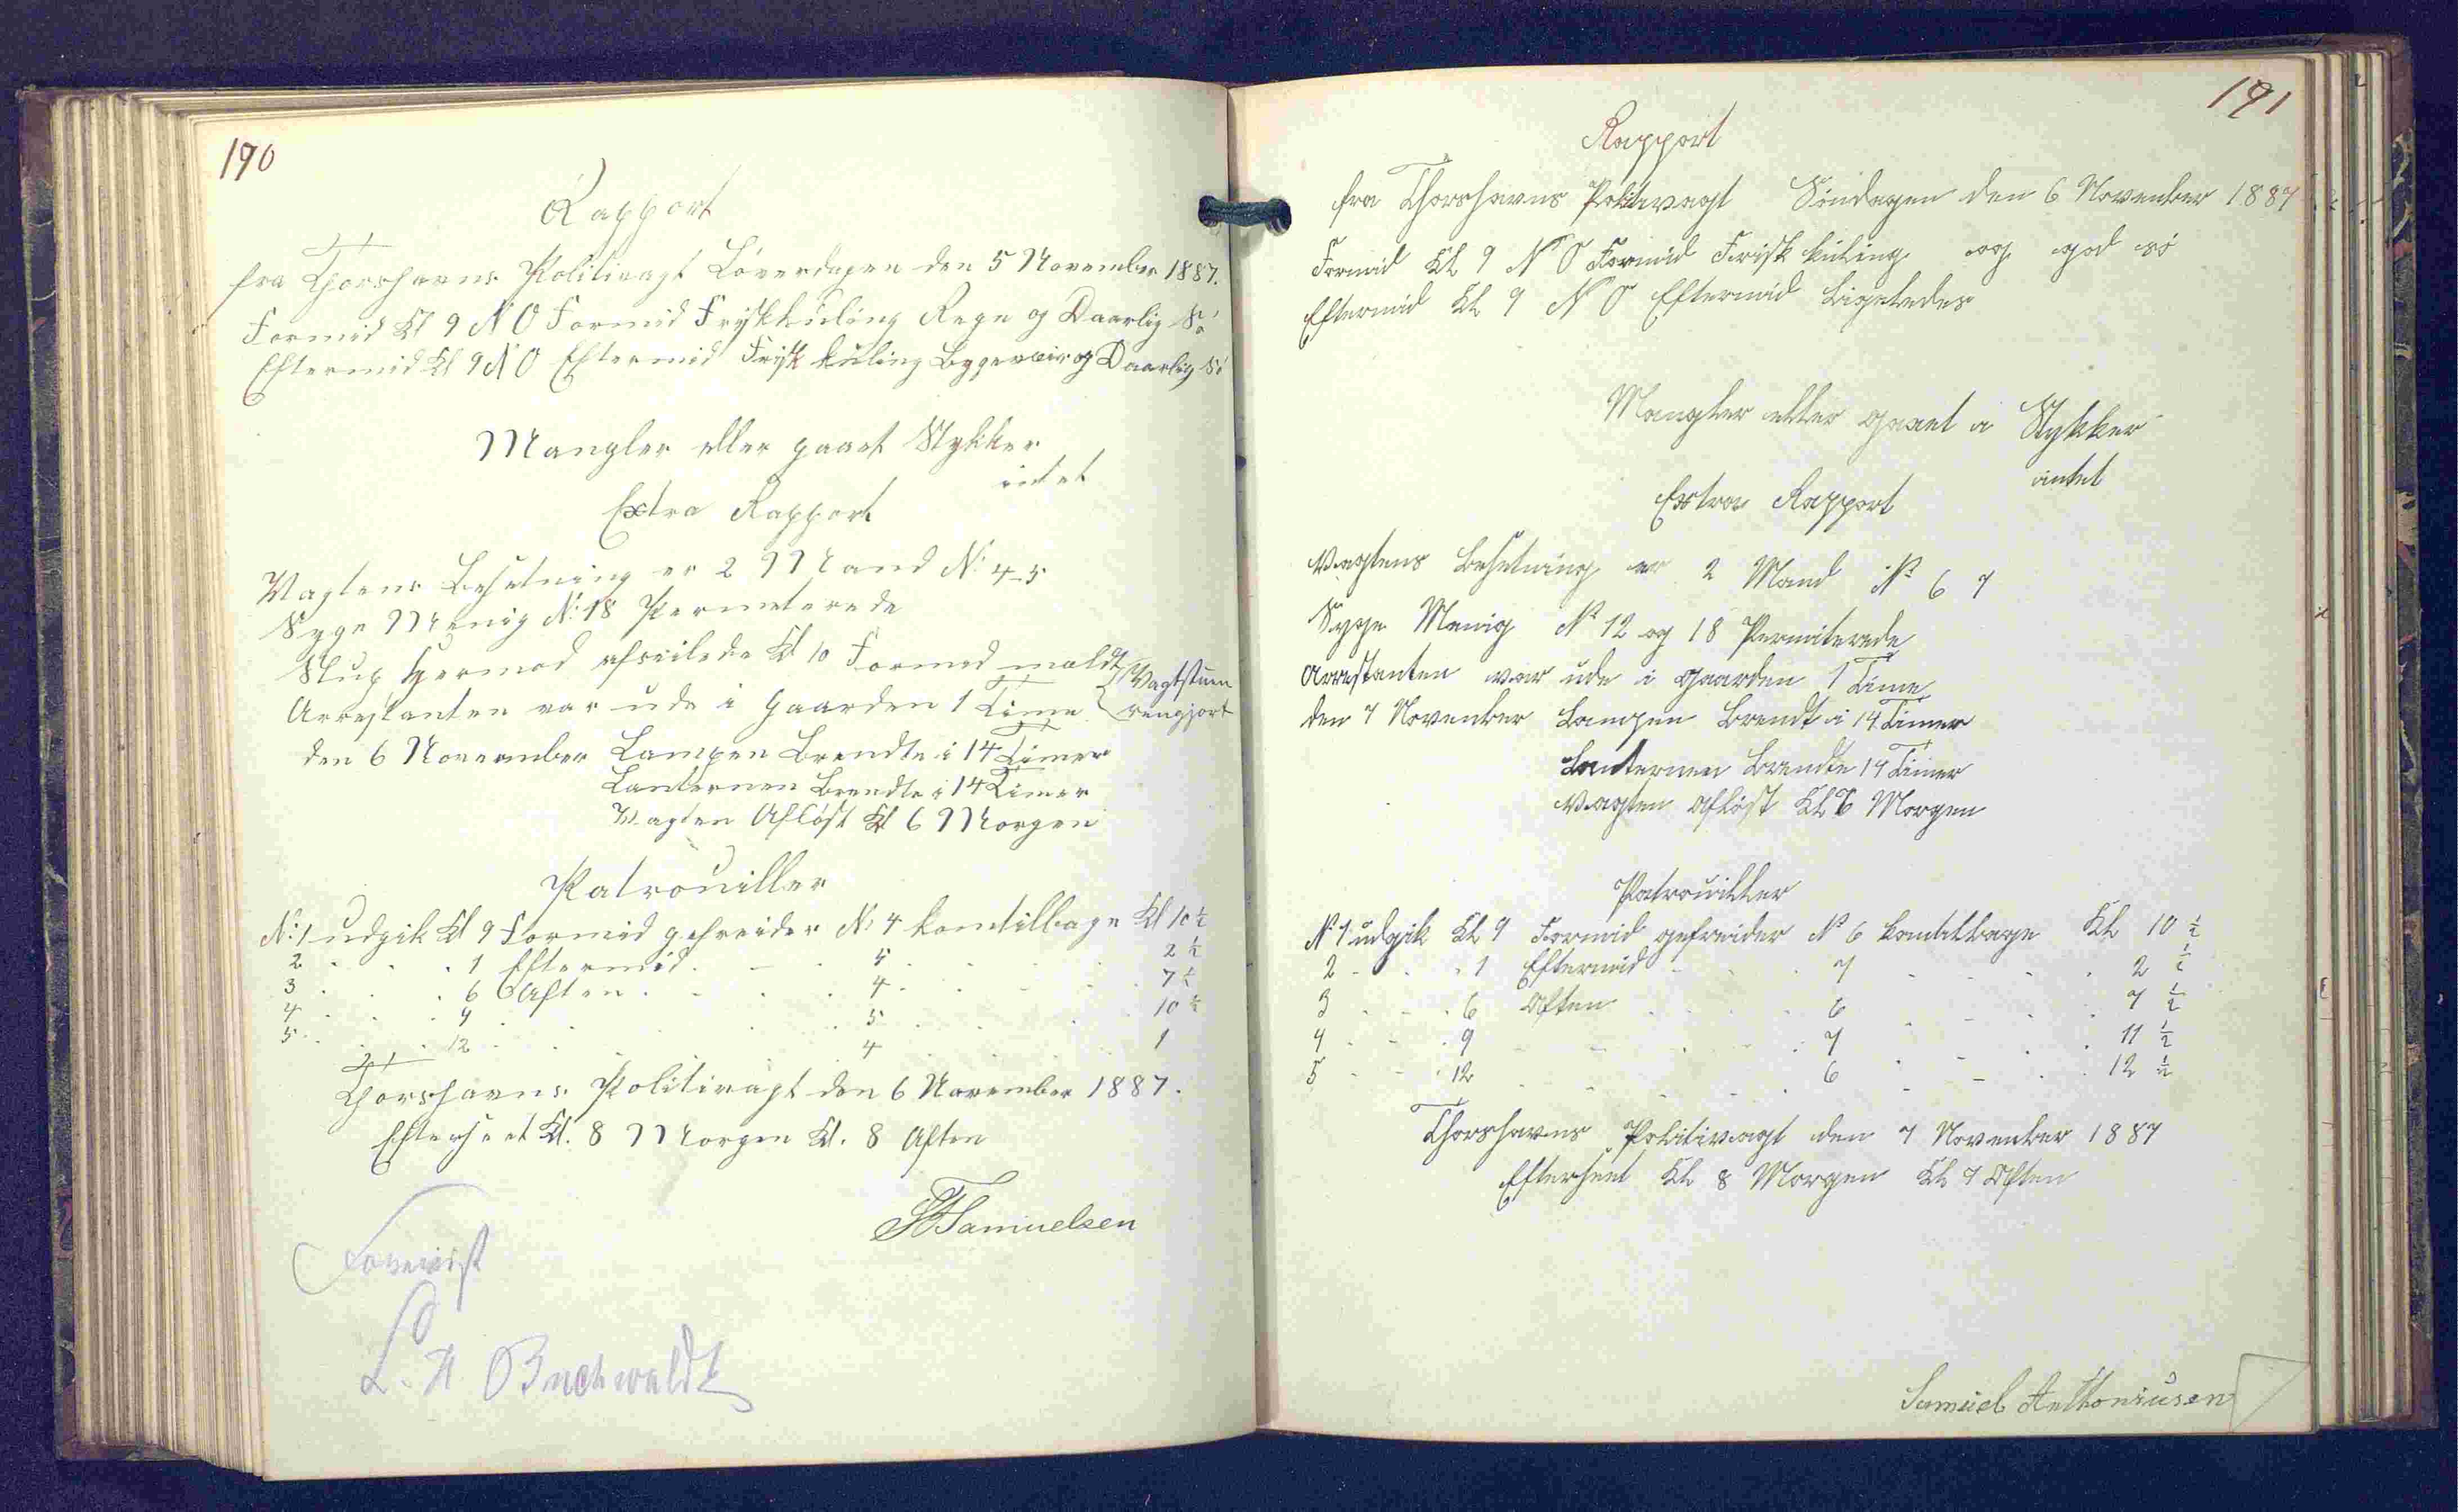 190
Rapport
fra Thorshavns Politivagt Löverdagen den 5 November 1887.
Formid Kl 9 N O Formid Friskkuling Regn og Daarlig Sö
Eftermid Kl 9 N O Eftermid Frisk kuling Bygeveir og Daarlig Sö
Mangler eller gaaet Stykker
intet
Extra Rapport
Vagtens Besetning er 2 Mand N: 4-5
Syge Menig N: 18 Permeterede
Slup Hermod afseilede Kl 10 Formed meldt
Vagtstuen
Arrestanten var ude i Gaarden 1 Time
rengjort
den 6 November Lampen Brendte i 14 Timer
Lanternen Brendte i 14 Timer
Vagten Aflöst Kl 6 Morgen
Patrouiller
N: 1 udgik Kl 9 Formid gefreider N: 4 kom tilbage Kl 10 ½
2 . . . 1 Eftermid . . . 5 . . . 2 ½
3 . . . 6 Aften . . . 4 . . . 7 ½
4 . . . 9 . . . 5 . . . 10 ½
5 . . . 12 . . . 4 . . . 1
Thorshavns Politivagt den 6 November 1887.
Efterseet Kl. 8 Morgen Kl. 8 Aften
Samuelsen
Forevist
L. A. Buchwaldt
191
Rapport
fra Thorshavns Politivagt Söndagen den 6 November 1887
Formid Kl 9 N O Formid Frisk kuling og god sö
Eftermid Kl 9 N O Eftermid Ligeledes
Mangler eller gaaet i Stykker
intet
Extra Rapport
Vagtens Besetning er 2 Mand No 6 7
Syge Menig No 12 og 18 Permiterede
Arrestanten var ude i Gaarden 1 Time
den 7 November Lampen Brendt i 14 Timer
Lanternen Brendte 14 Timer
Vagten Aflöst Kl 6 Morgen
Patrouiller
No 1 udgik Kl 9 Formid gefreider No 6 kom tilbage Kl 10 ½
2 . . . 1 Eftermid . . . 7 . . . 2 ½
3 . . . 6 Aften . . . 6 . . . 7 ½
4 . . . 9 . . . 7 . . . 11 ½
5 . . . 12 . . . 6 . . . 12 ½
Thorshavns Politivagt den 7 November 1887
Efterseet Kl 8 Morgen Kl 7 Aften
Samuel Anthoniusen